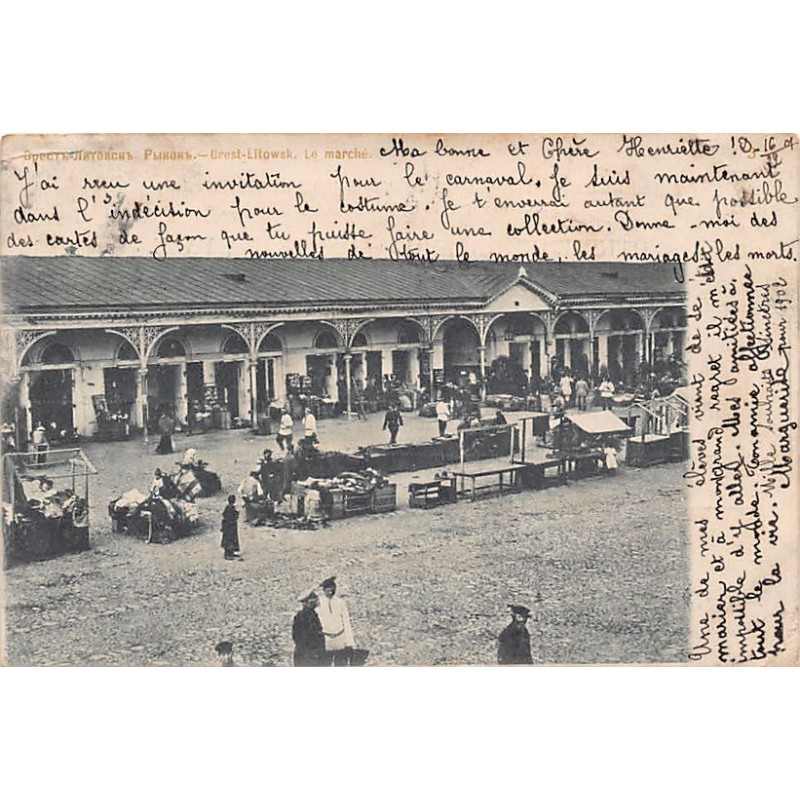 Брестъ-Литовскъ. Рынокъ.—Brest-Litowsk. Le marché.
Ma bonne et Chère Henriette !
J'ai reçu une invitation pour le carnaval. Je suis maintenant
dans l'indécision pour le costume. Je t'enverrai autant que possible
des cartes de façon que tu puisse faire une collection. Donne-moi des
nouvelles de tout le monde, les mariages, les morts.
Une de mes élèves vient de se
marier et à mon grand regret il m'était
impossible d'y aller. Mes amitiés à
tout le monde. Ton amie affectionnée
pour la vie. Mille souhaits sincères
Marguerite pour 1902